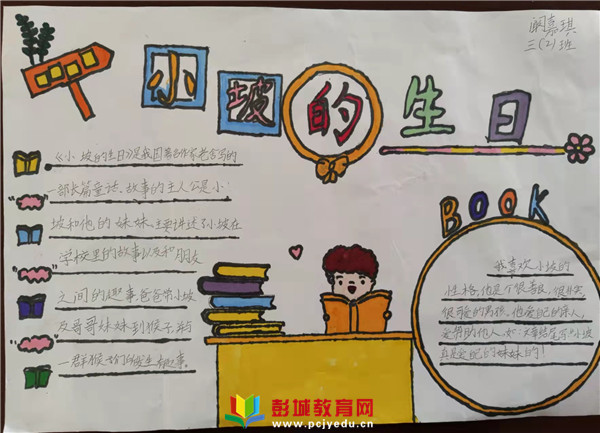 嘉琪
三(2)班
小坡的生日
《小坡的生日》是我国著名作家老舍写的
一部长篇童话、故事的主人公是小
坡和他的妹妹、主要讲述了小坡在
学校里的故事以及和朋友
之间的趣事、爸爸带小坡
及哥哥妹妹到猴子
一群猴
BOOK
我喜欢小坡的
性格,他是个很善良、很
很可爱的男孩、他爱自己的家人,
爱帮助他人、
妹妹的!
彭城教育网
www.pcjyedu.cn